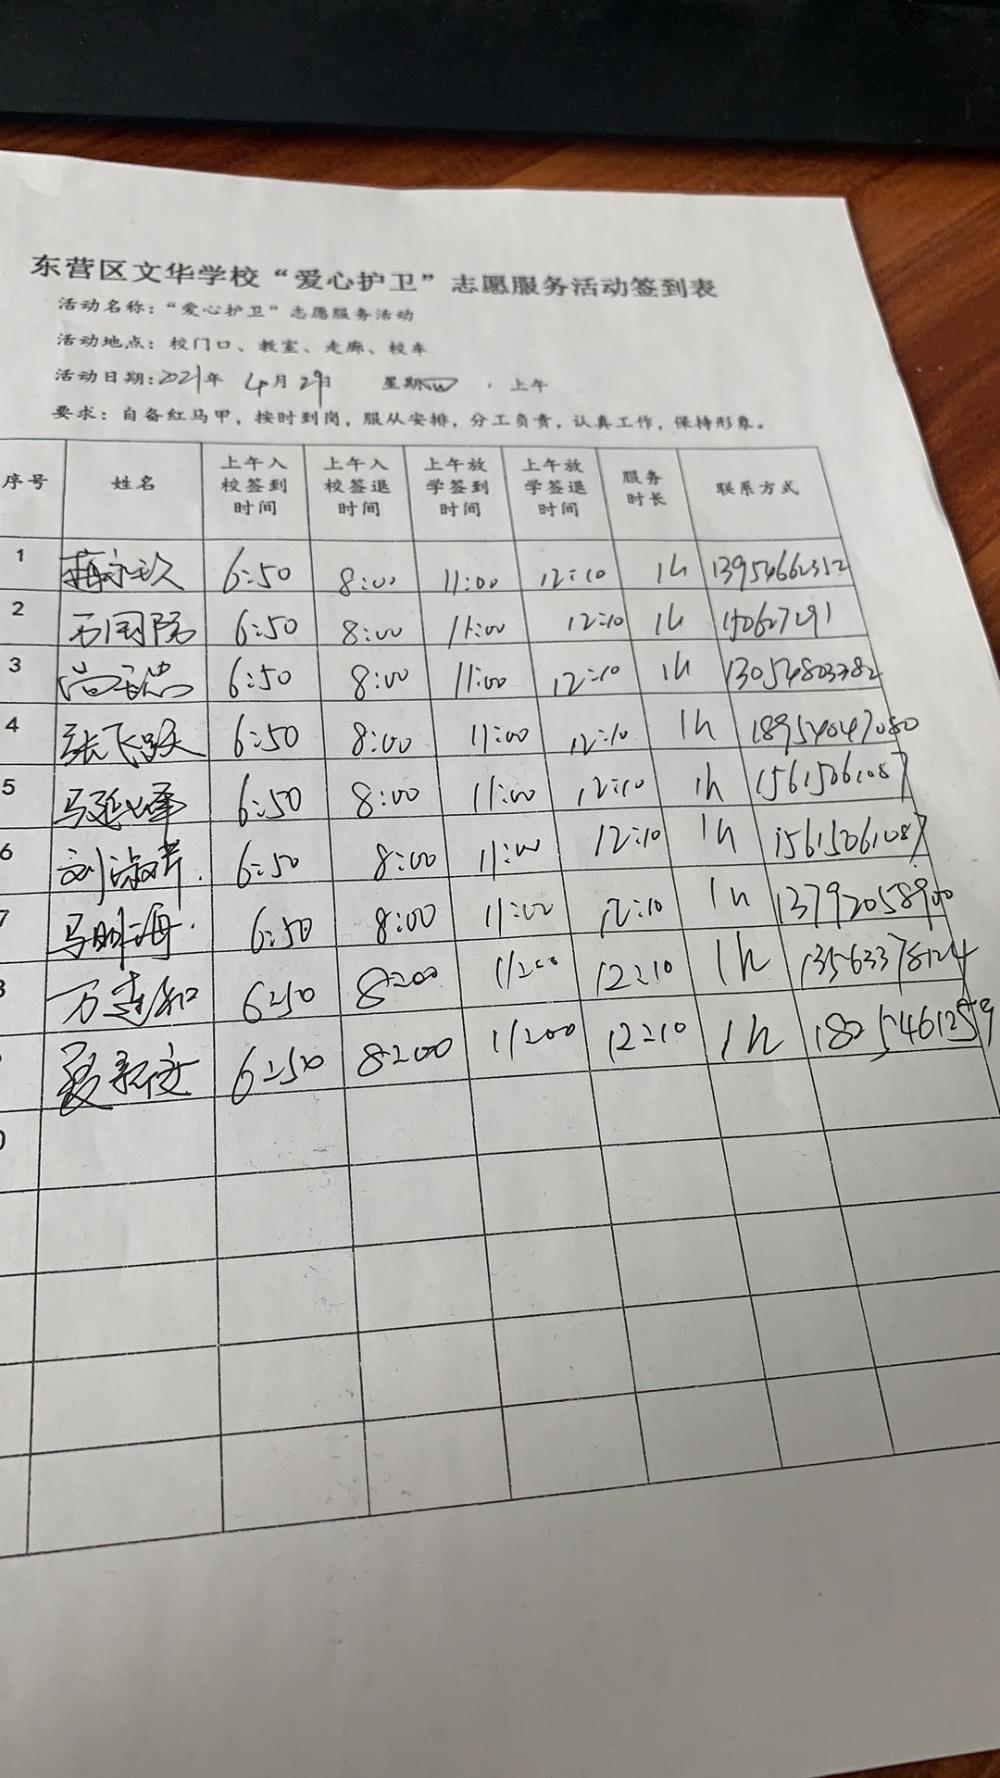 东营区文华学校“爱心护卫”志愿服务活动签到表
活动名称：“爱心护卫”志愿服务活动
活动地点：校门口、教室、走廊、校车
活动日期：2021年 4月29日 星期四 ，上午
要求：自备红马甲，按时到岗，服从安排，分工负责，认真工作，保持形象。
序号 姓名 上午入校签到时间 上午入校签退时间 上午放学签到时间 上午放学签退时间 服务时长 联系方式
1 6:50 8:00 11:00 12:10 1h 13954662312
2 6:50 8:00 11:00 12:10 1h
3 6:50 8:00 11:00 12:10 1h 13054803782
4 张飞跃 6:50 8:00 11:00 12:10 1h 18954047080
5 马延峰 6:50 8:00 11:00 12:10 1h 15615061087
6 刘淑芹 6:50 8:00 11:00 12:10 1h 15615061087
7 马明海 6:50 8:00 11:00 12:10 1h 13792058900
6:50 8:00 11:00 12:10 1h 13563378124
6:50 8:00 11:00 12:10 1h 18254612519